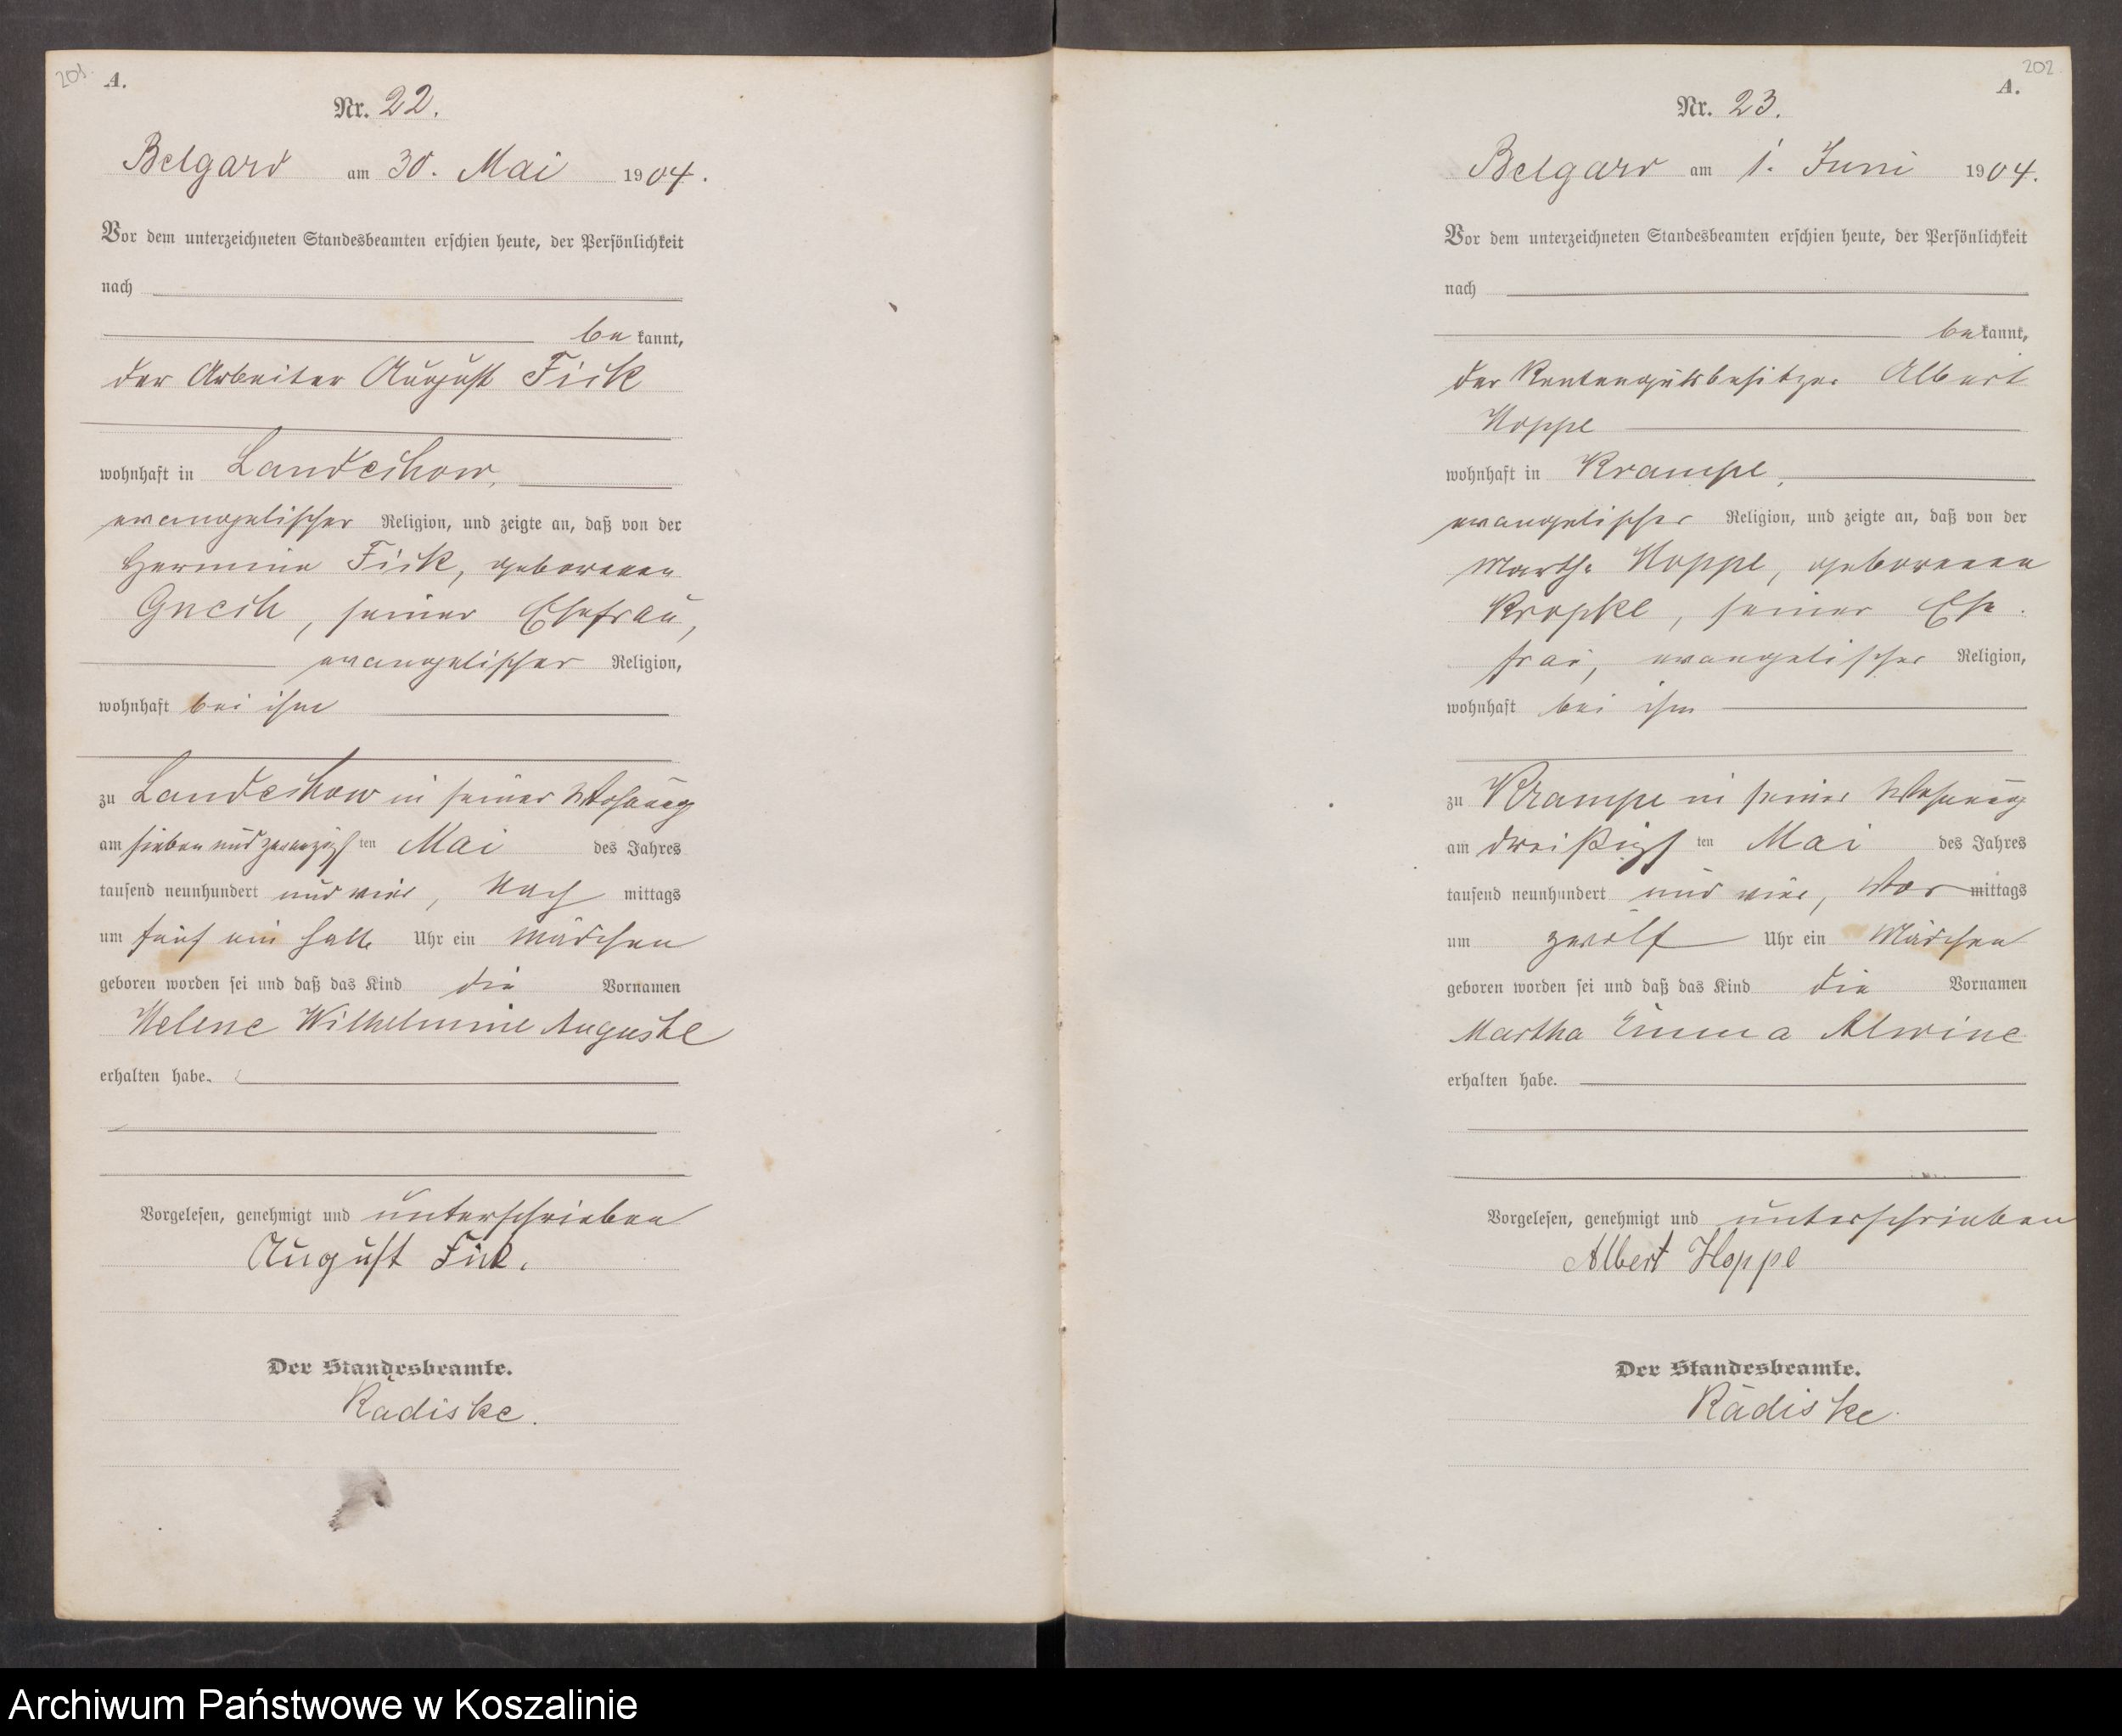 201.
A.
Nr. 22.
Belgard am 30. Mai 1904.
Vor dem unterzeichneten Standesbeamten erschien heute, der Persönlichkeit
nach
be kannt,
der Arbeiter August Fick
wohnhaft in Landechow,
evangelischer Religion, und zeigte an, daß von der
Hermine Fick, geborenen
Gnech, seiner Ehefrau,
evangelischer Religion,
wohnhaft bei ihm
zu Landechow in seiner Wohnung
am sieben und zwanzigsten Mai des Jahres
tausend neunhundert und vier, Nach mittags
um fünf ein halb Uhr ein Mädchen
geboren worden sei und daß das Kind die Vornamen
Helene Wilhelmine Auguste
erhalten habe.
Vorgelesen, genehmigt und unterschrieben
August Fick.
Der Standesbeamte.
Radiske.
202
A.
Nr. 23.
Belgard am 1. Juni 1904.
Vor dem unterzeichneten Standesbeamten erschien heute, der Persönlichkeit
nach
bekannt,
der Rentengutsbesitzer Albert
Hoppe
wohnhaft in Krampe,
evangelischer Religion, und zeigte an, daß von der
Martha Hoppe, geborenen
Kropke, seiner Ehe
frau, evangelischer Religion,
wohnhaft bei ihm
zu Krampe in seiner Wohnung
am dreißigsten Mai des Jahres
tausend neunhundert und vier, Vor mittags
um zwölf Uhr ein Mädchen
geboren worden sei und daß das Kind die Vornamen
Martha Emma Alwine
erhalten habe.
Vorgelesen, genehmigt und unterschrieben
Albert Hoppe
Der Standesbeamte.
Radiske.
Archiwum Państwowe w Koszalinie